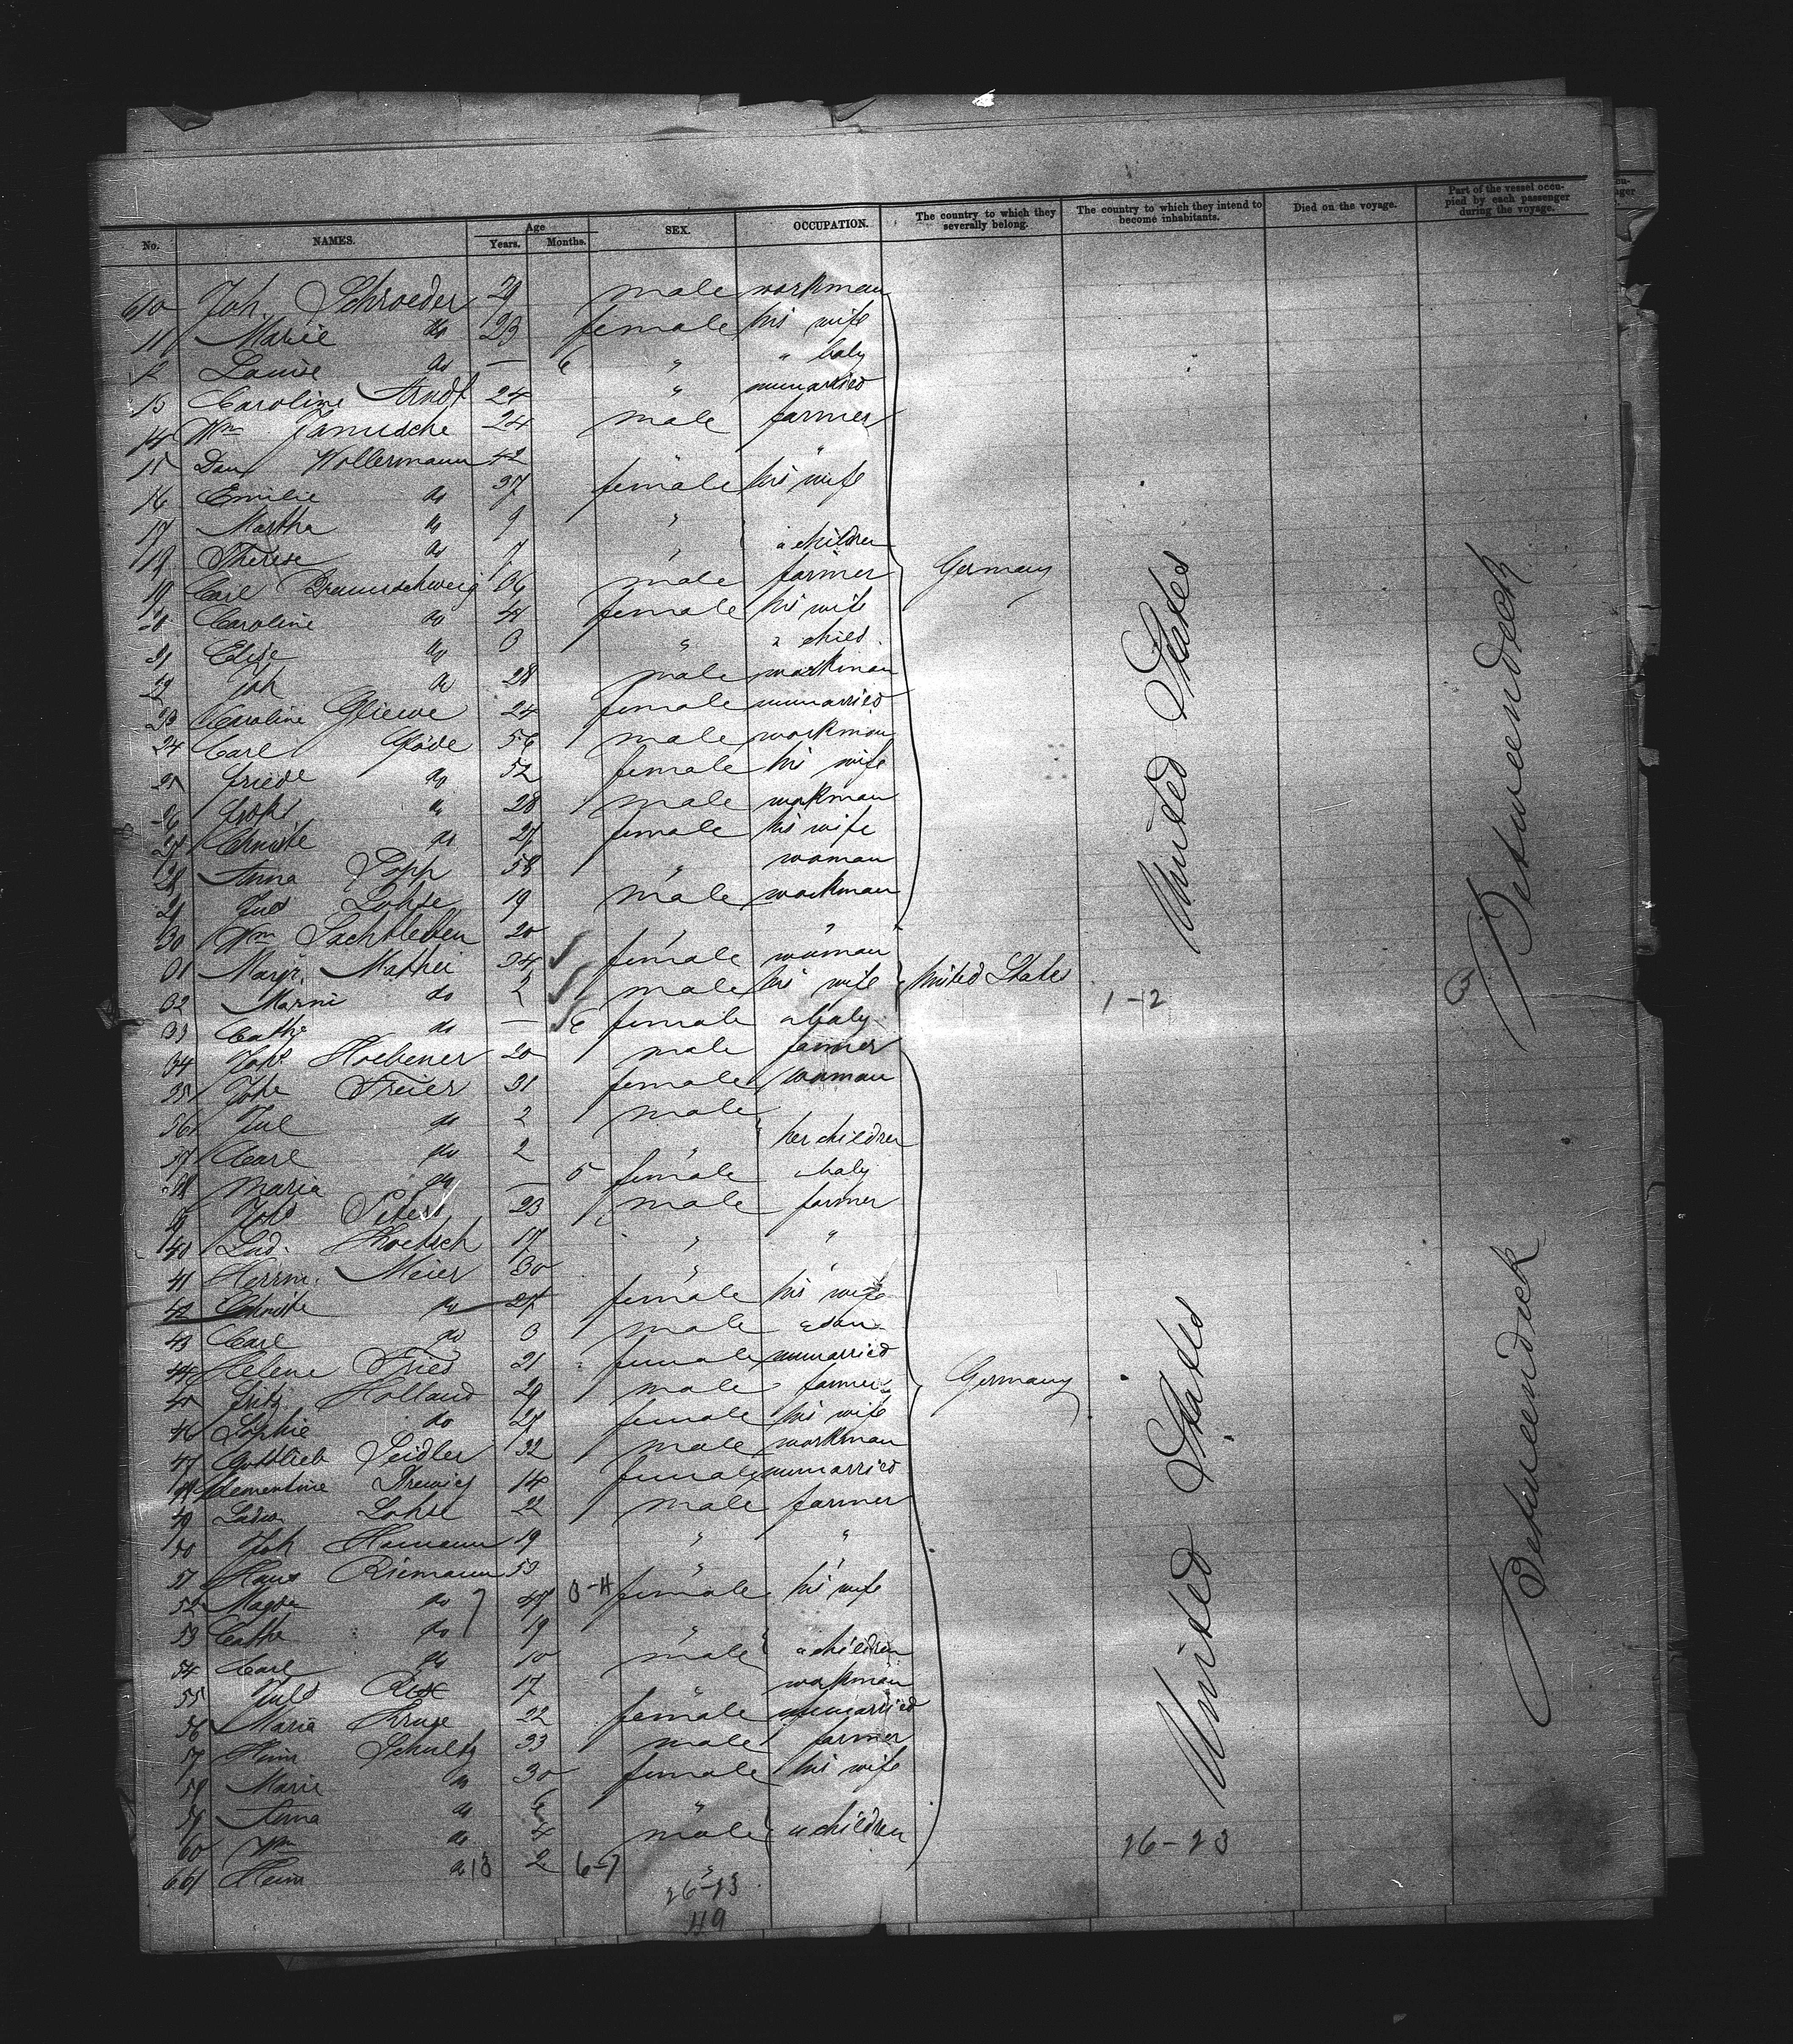 No. NAMES. Age Years. Months. SEX. OCCUPATION. The country to which they severally belong. The country to which they intend to become inhabitants. Died on the voyage. Part of the vessel occupied by each passenger during the voyage.
610 Joh. Schroeder 29 male workman
11 Marie do 23 female his wife
12 Louise do — 6 " " baby
13 Caroline Arndt 24 " unmarried
14 Wm Janusche 24 male farmer
15 Dan Wollermann 42 " "
16 Emilie do 37 female his wife
17 Martha do 9 "
18 Therese do 7 " " children
19 Carl Braunschweig 36 male farmer Germany
20 Caroline do female his wife
21 Elise do 3 " " child
22 Joh do 28 male workman
23 Caroline Gliewe 24 female unmarried
24 Carl 56 male workman
25 Friede do 52 female his wife
26 do 28 male workman
27 Christe do 27 female his wife
28 Anna Popp 58 " woman
29 Jul Lohse 19 male workman
30 Wm Sachtleben 20 " "
31 Margr. Mathei 34 female woman
32 do 2 male his wife United States 1-12
33 Cathe do — 6 female " baby
34 Joh. Hoebener 20 male farmer
35 Johe Freier 31 female woman
36 Jul do 2 male
37 Carl do 2 " her children
38 Maria do — 5 female " baby
39 Joh 23 male farmer
40 Lud. 17 " "
41 Herrm. Meier 30 " "
42 Christe do 27 female his wife
43 Carl do 3 male " son
44 Helene Fries 21 female unmarried
45 Fritz Holland 29 male farmer Germany
46 Sophie do 27 female his wife
47 Gottlieb Seidler 32 male workman
48 Clementine Drewicz 14 female unmarried
49 Ludw Lohse 22 male farmer
50 Joh Homann 19 " "
51 Hans Riemann 53 " "
52 Magda do 47 3-4 female his wife
53 Cathe do 19 "
54 Carl do 10 male " children
55 Juls 17 " workman
56 Maria Kruse 22 female unmarried
57 Heinr Schultz 33 male farmer
58 Marie do 30 female his wife
59 Anna do 6 "
60 Wm do 4 male " children
661 Hein do 13 2 6-7 "
26-23
49
United States
United States
26-23
Betweendeck
3
Betweendeck